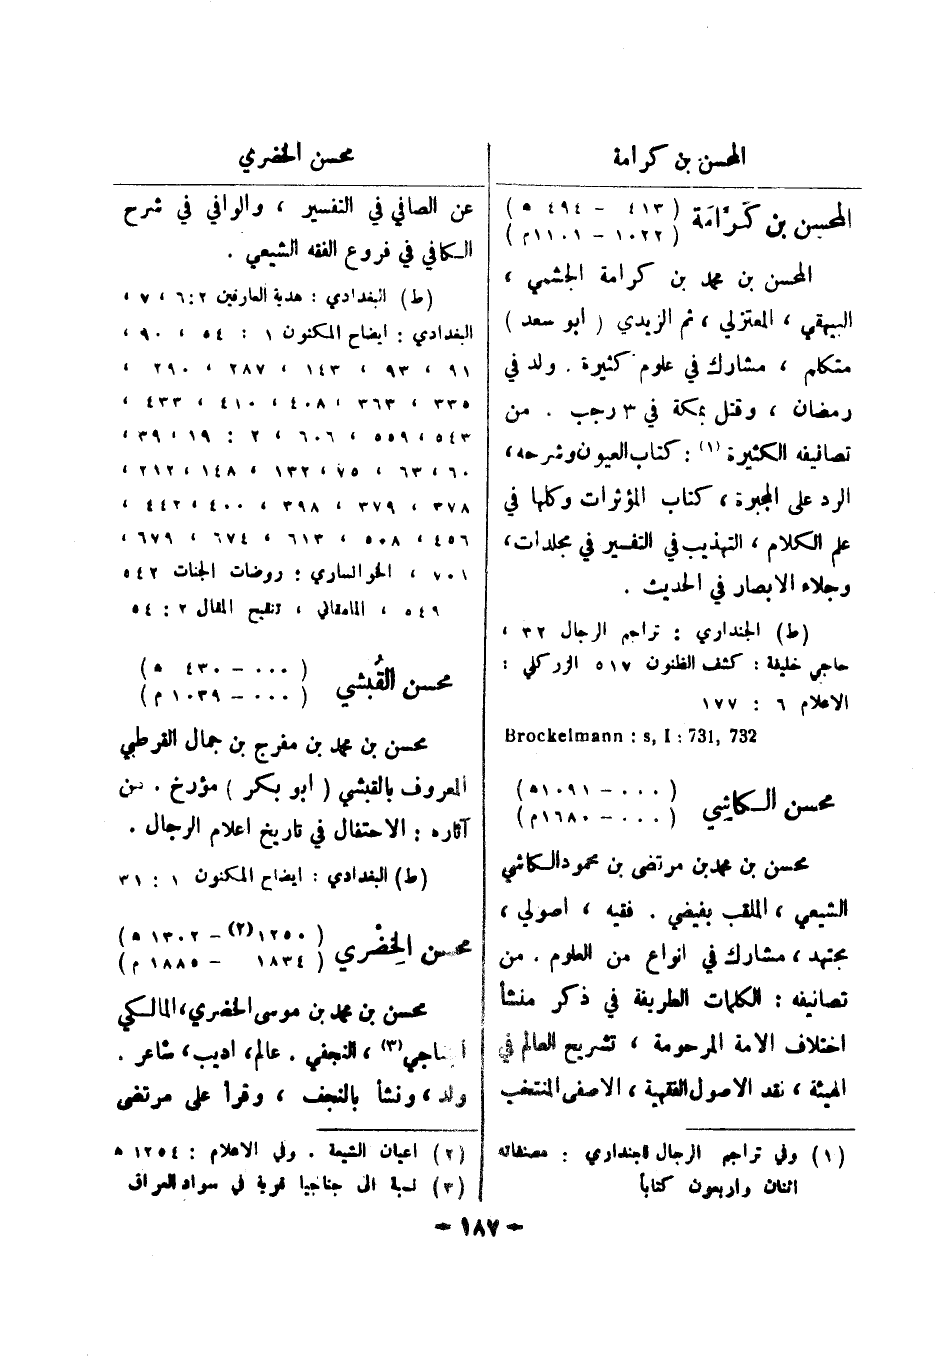 المحسن بن كرامة
المحسن بن كَرَّامَة ( ٤١٣ - ٤٩٤ ه )
( ١٠٢٢ - ١١٠١م )
المحسن بن محمد بن كرامة الجشمي ،
البيهقي ، المعتزلي ، ثم الزيدي ( ابو سعد )
متكلم ، مشارك في علوم كثيرة . ولد في
رمضان ، وقتل بمكة في ٣ رجب . من
تصانيفه الكثيرة (١) : كتاب العيون وشرحه ،
الرد على المجبرة ، كتاب المؤثرات وكلها في
علم الكلام ، التهذيب في التفسير في مجلدات ،
وجلاء الابصار في الحديث .
(ط) الجنداري : تراجم الرجال ٣٢ ،
حاجي خليفة : كشف الظنون ٥١٧ الزركلي :
الاعلام ٦ : ١٧٧
Brockelmann : s, I : 731, 732
محسن الكاشي ( ٠٠٠ - ١٠٩١ه )
( ٠٠٠ - ١٦٨٠م )
محسن بن محمد بن مرتضى بن محمود الكاشي
الشيعي ، الملقب بفيضي . فقيه ، اصولي ،
مجتهد ، مشارك في انواع من العلوم . من
تصانيفه : الكلمات الطريفة في ذكر منشأ
اختلاف الامة المرحومة ، تشريح العالم في
الهيئة ، نقد الاصول الفقهية ، الاصفى المنتخب
(١) وفي تراجم الرجال للجنداري : مصنفاته
اثنان واربعون كتاباً
محسن الخضري
عن الصافي في التفسير ، والوافي في شرح
الكافي في فروع الفقه الشيعي .
(ط) البغدادي : هدية العارفين ٢ : ٦ ، ٧ ،
البغدادي : ايضاح المكنون ١ : ٥٤ ، ٩٠ ،
٩١ ، ٩٣ ، ١٤٣ ، ٢٨٧ ، ٢٩٠ ،
٣٣٥ ، ٣٦٣ ، ٤٠٨ ، ٤١٠ ، ٤٣٣ ،
٥٤٣ ، ٥٥٩ ، ٦٠٦ ، ٢ : ١٩ ، ٣٩ ،
٦٠ ، ٦٣ ، ٧٥ ، ١٣٢ ، ١٤٨ ، ٢١٢ ،
٣٧٨ ، ٣٧٩ ، ٣٩٨ ، ٤٠٠ ، ٤٤٢ ،
٤٥٦ ، ٥٠٨ ، ٦١٣ ، ٦٧٤ ، ٦٧٩ ،
٧٠١ ، الخوانساري : روضات الجنات ٥٤٢
٥٤٩ ، المامقاني ، تنقيح المقال ٢ : ٥٤
محسن القُبشي ( ٠٠٠ - ٤٣٠ ه )
( ٠٠٠ - ١٠٣٩ م )
محسن بن محمد بن مفرج بن جمال القرطبي
المعروف بالقبشي ( ابو بكر ) مؤرخ . من
آثاره : الاحتفال في تاريخ اعلام الرجال .
(ط) البغدادي : ايضاح المكنون ١ : ٣١
محسن الخِضْري ( ١٢٥٠(٢) - ١٣٠٢ ه )
( ١٨٣٤ - ١٨٨٥ م )
محسن بن محمد بن موسى الخضري ، المالكي
(٣) ، النجفي . عالم ، اديب ، شاعر .
ولد ، ونشأ بالنجف ، وقرأ على مرتضى
(٢) اعيان الشيعة . وفي الاعلام : ١٢٥٤ ه
(٣) نسبة الى جناجيا قرية في سواد العراق
- ١٨٧ -